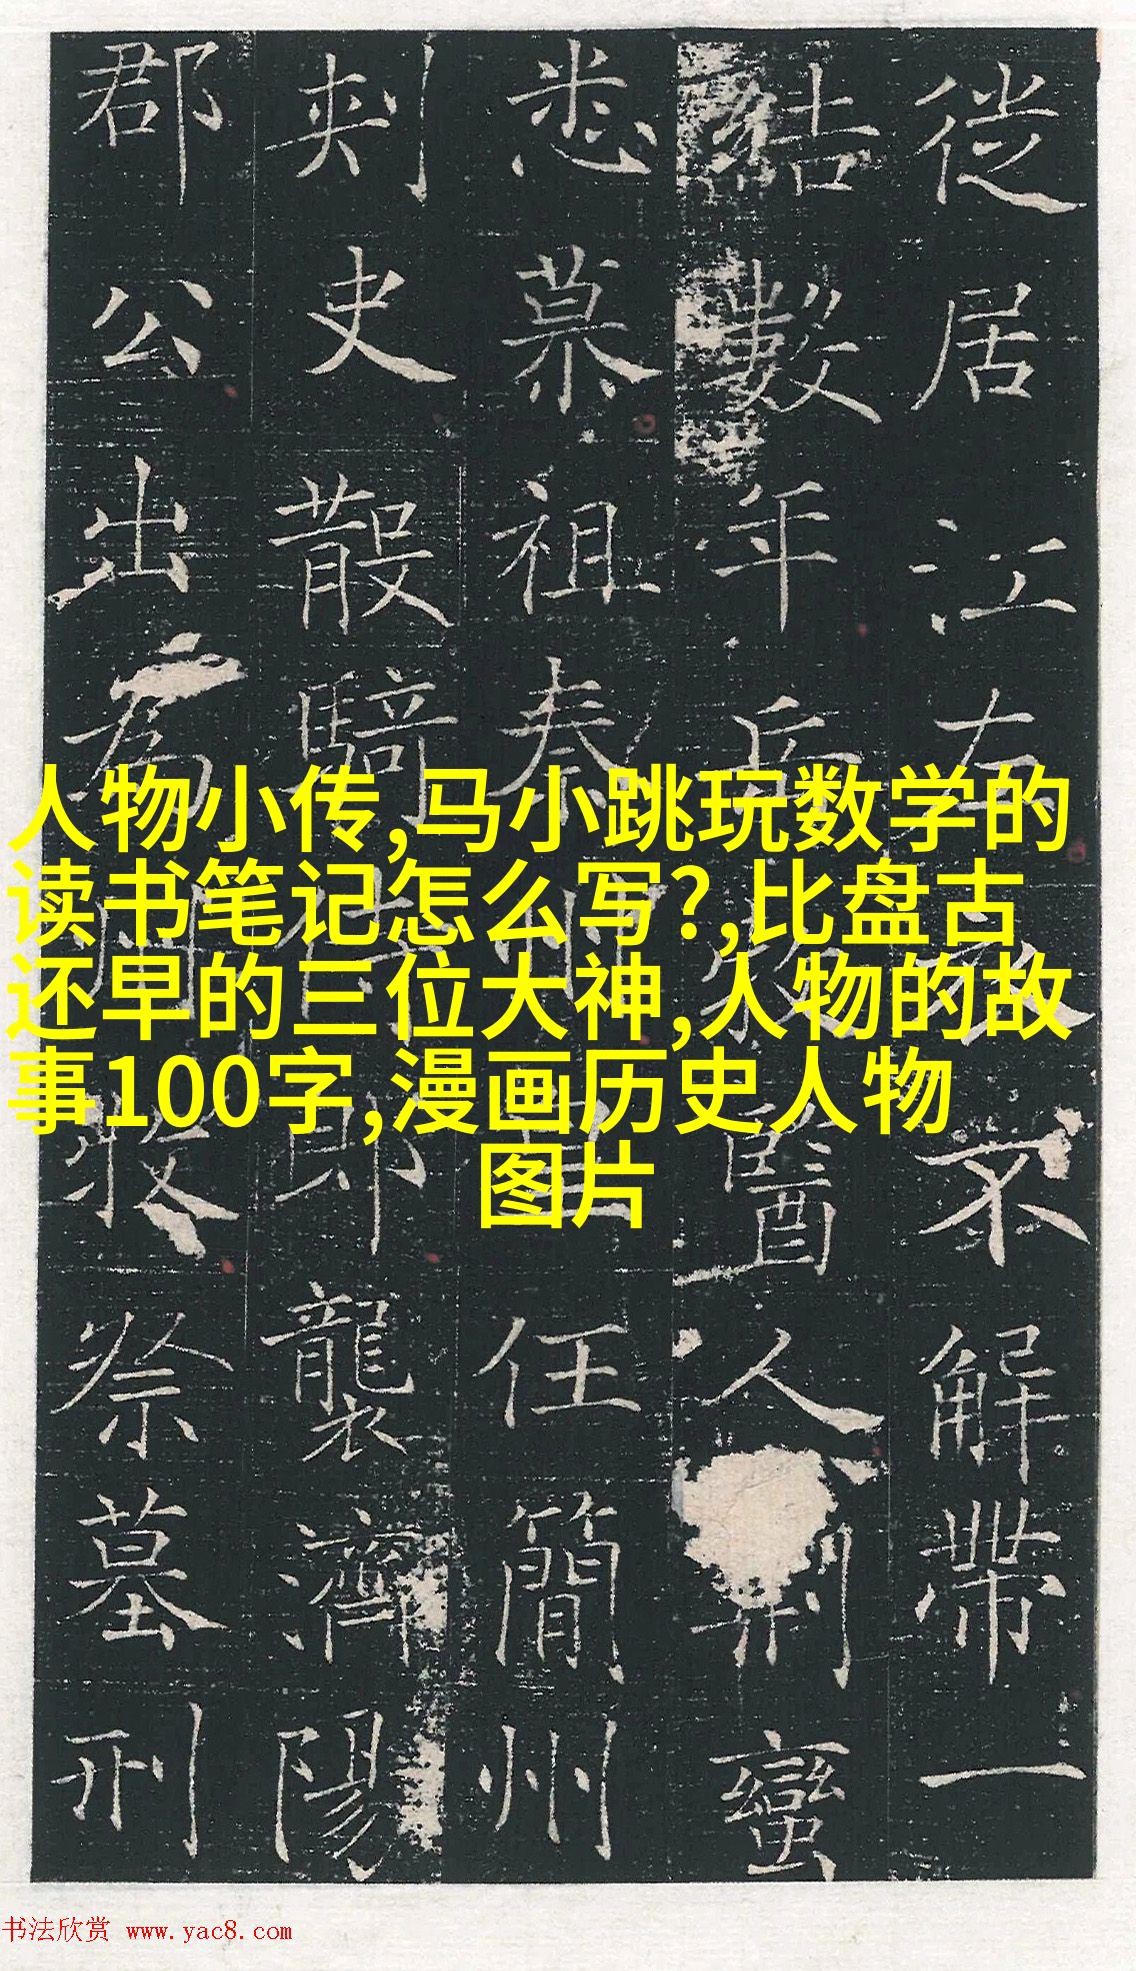 人物小传,马小跳玩数学的
读书笔记怎么写?,比盘古
还早的三位大神,人物的故
事100字,漫画历史人物
图片
居江不解帶一
數年醫人蠻
悉慕祖任簡州
刺史散騎郎襲濟陽
郡公出為祭墓刑
书法欣赏 www.yac8.com